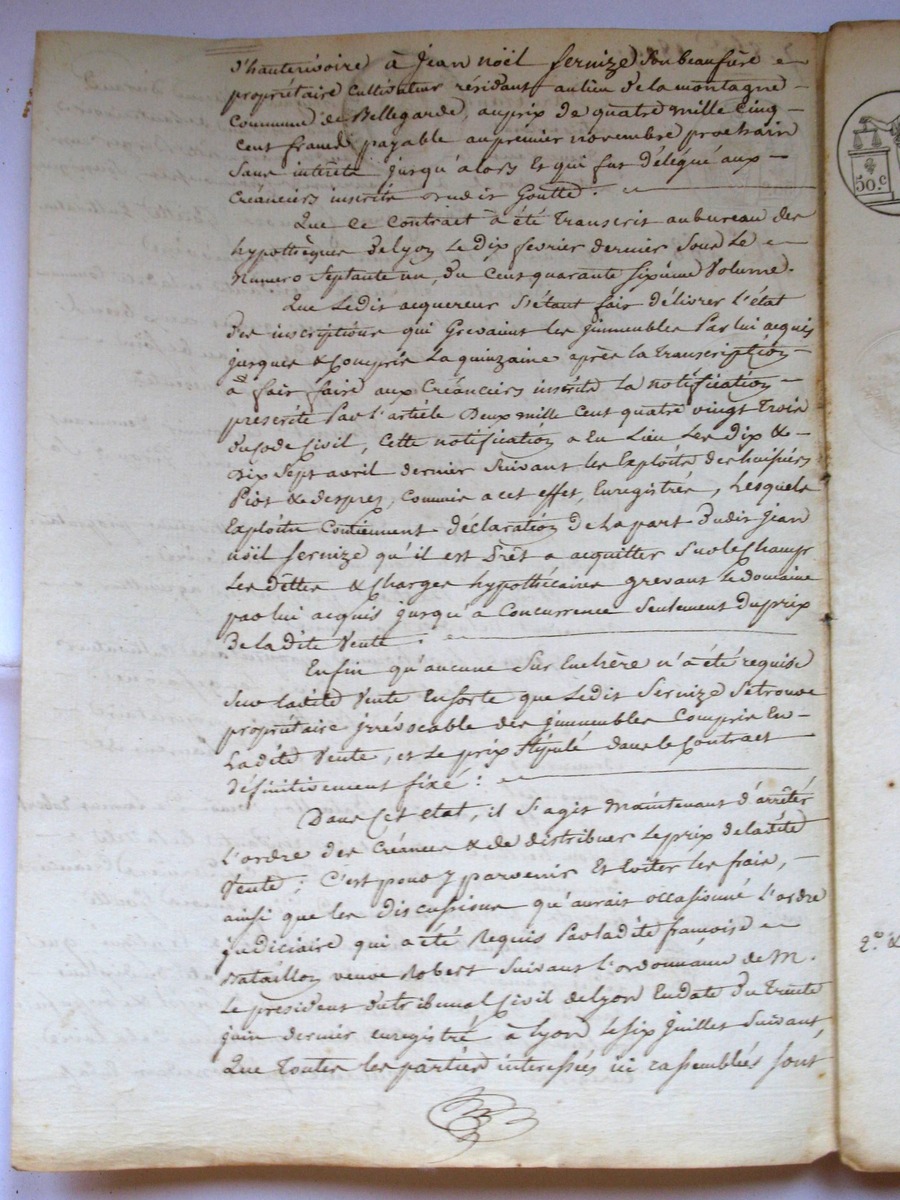 d'hauterivoire à Jean noël fernize son beaufrère
propriétaire cultivateur résidant au lieu de la montagne
Commune de Bellegarde, au prix de quatre mille cinq
Cent francs payable au premier novembre prochain
Sans intérêts jusqu'alors et qui fut délégué aux
Créanciers inscrits dudit Goutte.
Que Ce Contract à été Transcrit au bureau des
hypothèques de lyon le dix fevrier dernier sous le
Numero Septante un, du Cent quarante sixième Volume.
Que Ledit acquereur s'étant fait délivrer l'état
Des inscriptions qui Grevaint les immeubles Par lui acquis
jusques & Compris la quinzaine après la Transcription
à fait faire aux Créanciers inscrits la notification
prescrite Par l'article Deux mille Cent quatre vingt Trois
du Code Civil, Cette notification a Eu Lieu Les Dix &
Dix Sept avril dernier Suivant les Exploits des huissiers
Piot & despres, Commis a cet effet, Enregistrés, Lesquels
Exploits Contiennent déclaration de la part Dudit Jean
noël fernize qu'il est Prêt a acquitter Sur le Champ
Les Dettes & Charges hypothécaires grevant Le domaine
par lui acquis jusqu'à Concurrence Seulement du prix
De la dite Vente.
Enfin qu'aucune Sur Enchère n'a été requise
Sur ladite Vente En sorte que Ledit Fernize se trouve
propriétaire irrévocable des immeubles Compris En
Ladite Vente, et le prix stipulé dans le Contract
définitivement fixé :
Dans Cet état, il s'agit maintenant d'arrêter
L'ordre des Créances & de distribuer Le prix de ladite
Vente ; C'est pour y parvenir et Eviter les frais,
ainsi que les Discussions qu'aurait occasionné L'ordre
judiciaire qui a été Requis Par ladite françoise
Bataillon veuve Robert Suivant l'ordonnance de M.
Le président du tribunal Civil de lyon En date Du Trente
juin dernier enregistré à lyon le six juillet Suivant,
Que Toutes les parties interessées ici rassemblées sont
50.c
2.°